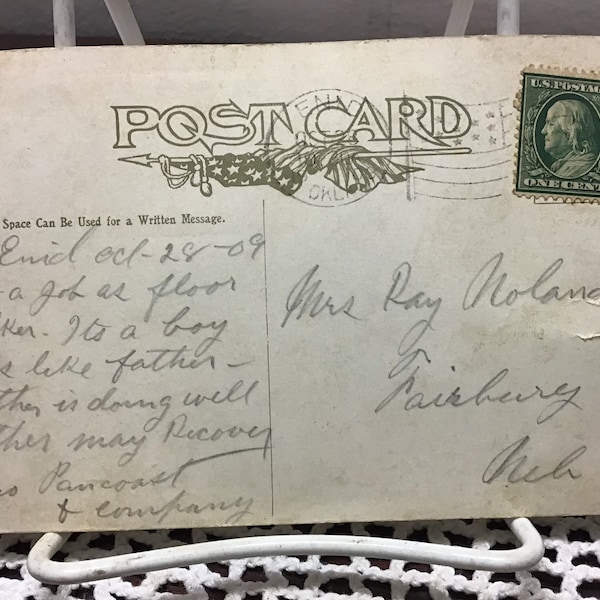 POST CARD
ENID
OKLA
U.S. POSTAGE
ONE CENT
Space Can Be Used for a Written Message.
Enid Oct-28-09
a Job as floor
ker. Its a boy
s like father-
ther is doing well
ther may Recover
Pancoast
& company
Mrs Ray Noland
Fairbury
Neb